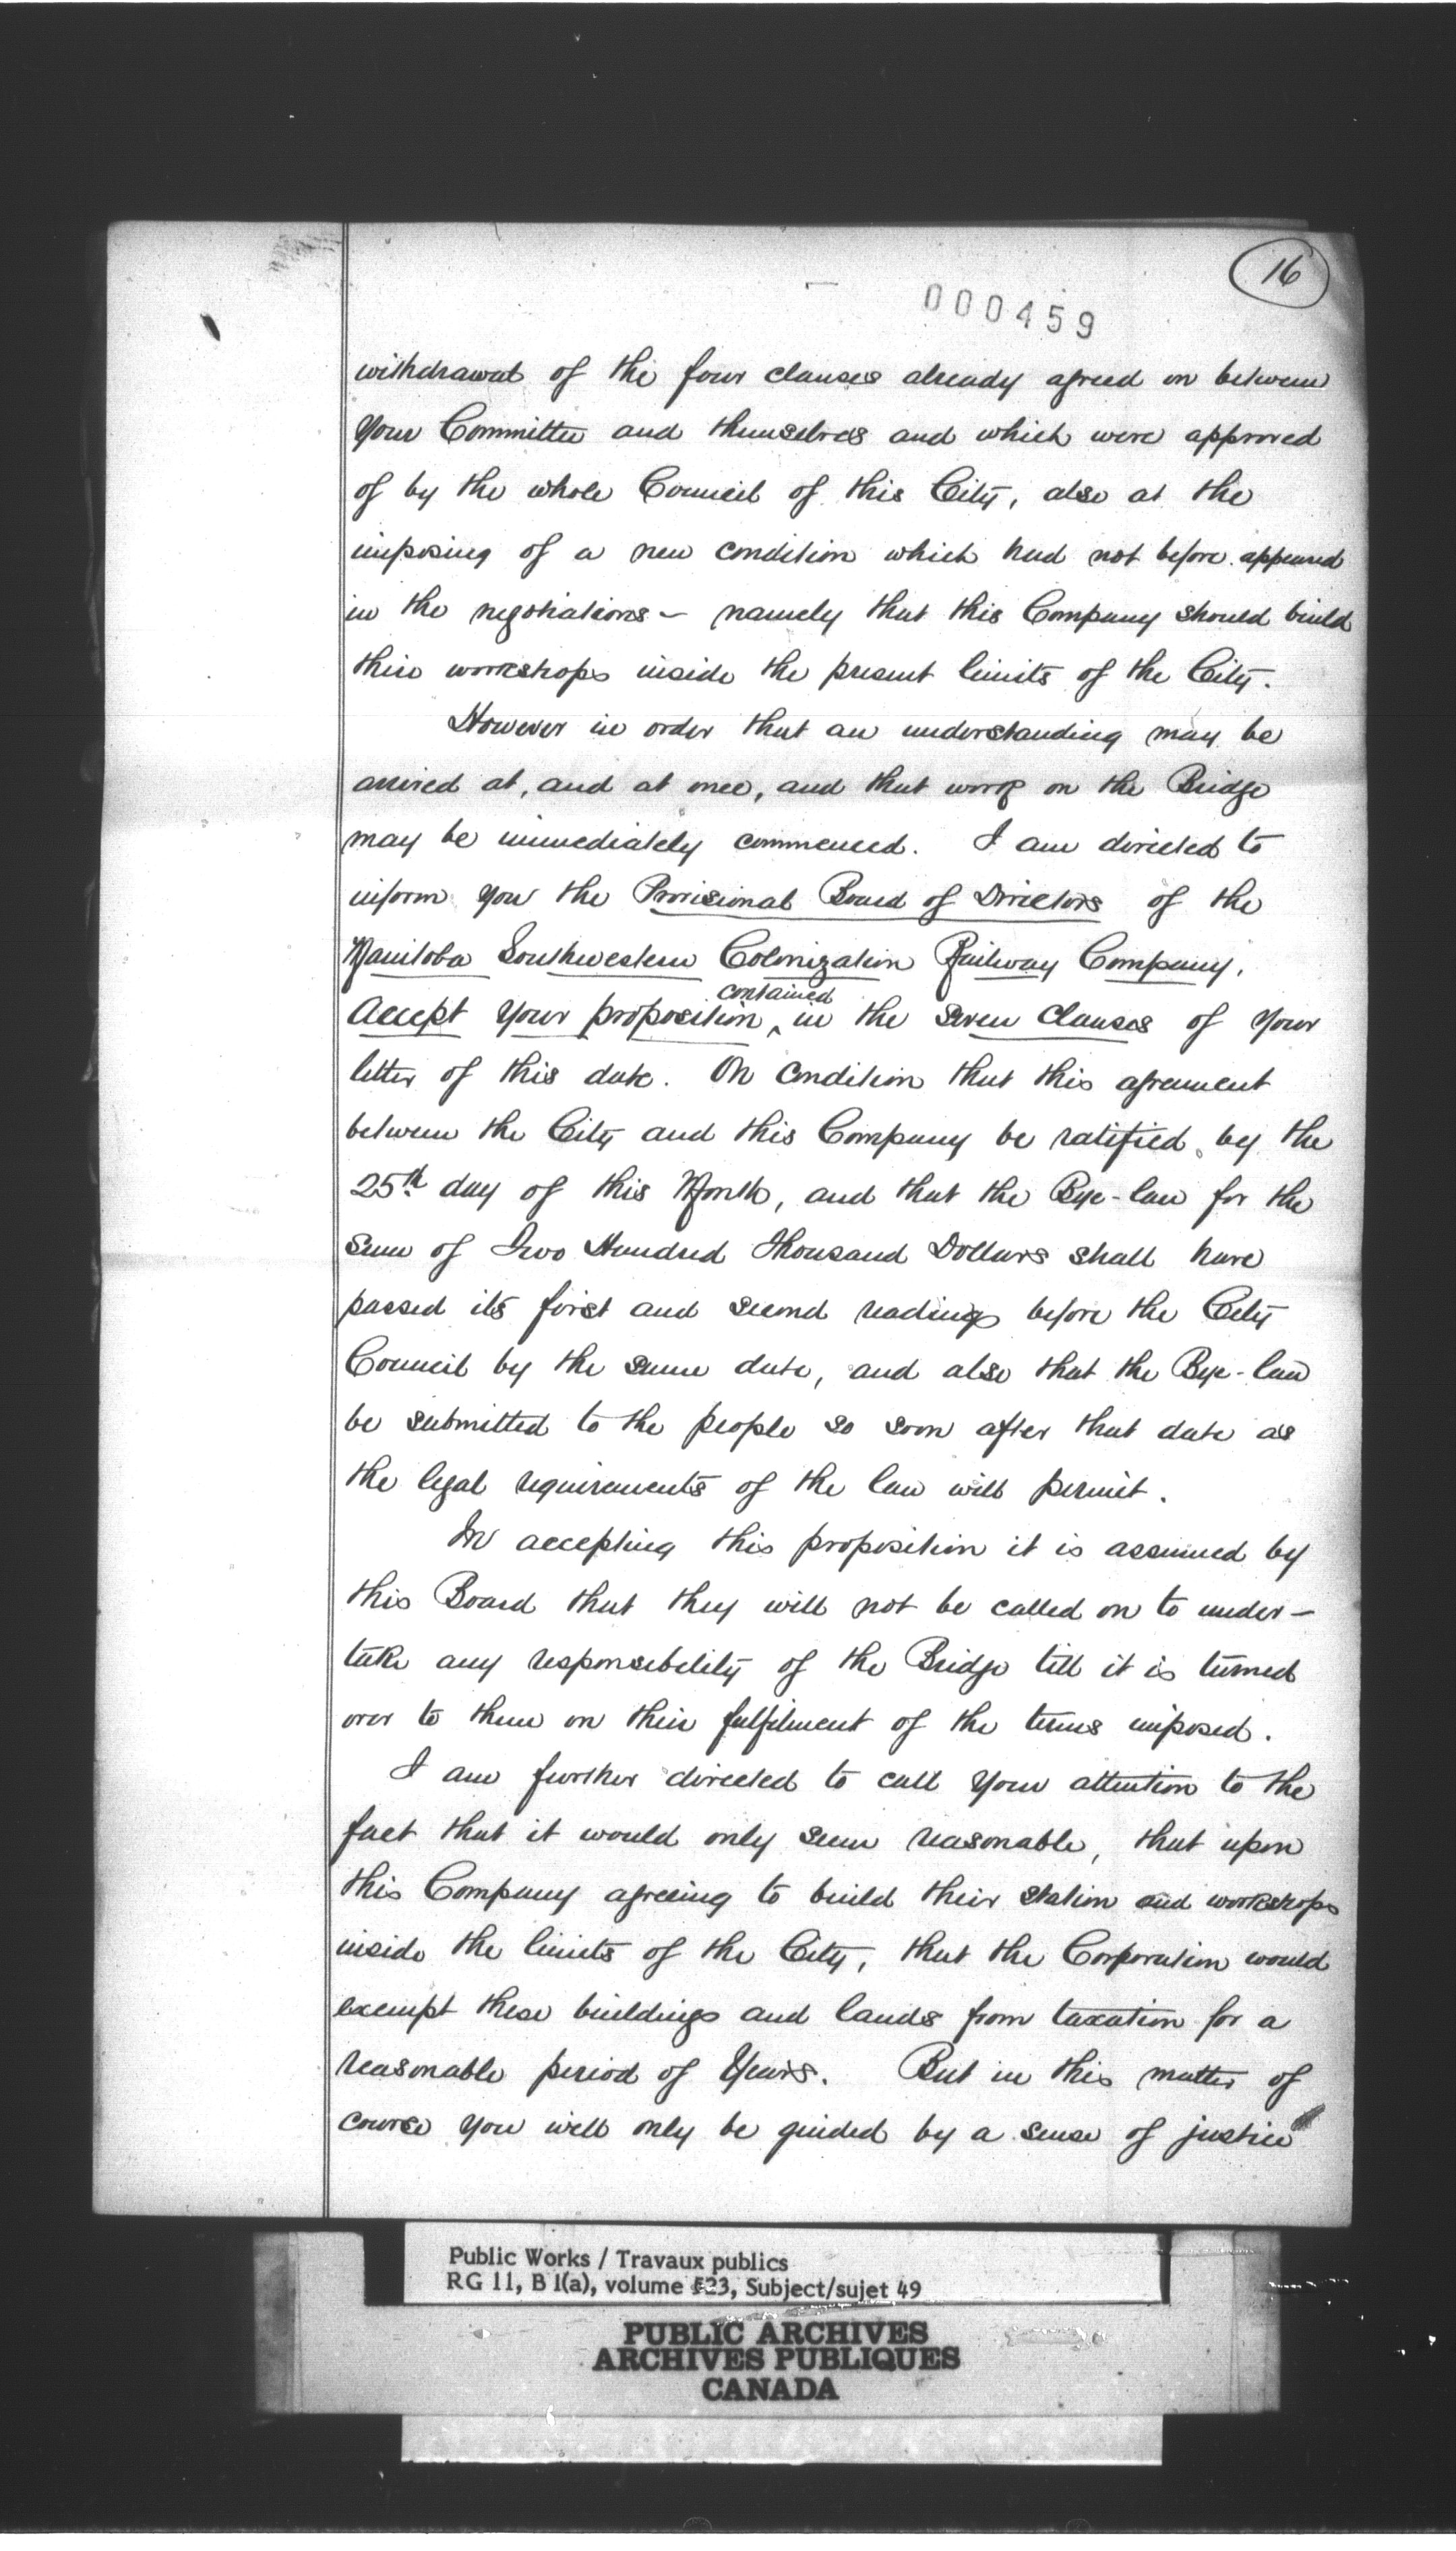 16
000459
withdrawal of the four clauses already agreed on between
Your Committee and themselves and which were approved
of by the whole Council of this City, also at the
imposing of a new condition which had not before appeared
in the negotiations – namely that this Company should build
their workshops inside the present limits of the City.
However in order that an understanding may be
arrived at, and at once, and that work on the Bridge
may be immediately commenced. I am directed to
inform you the Provisional Board of Directors of the
Manitoba Southwestern Colonization Railway Company,
Accept Your proposition ‸contained in the seven Clauses of Your
letter of this date. On Condition that this agreement
between the City and this Company be ratified by the
25th day of this Month, and that the Bye-law for the
Sum of Two Hundred Thousand Dollars shall have
passed its first and second readings before the City
Council by the same date, and also that the Bye-law
be submitted to the people so soon after that date as
the legal requirements of the law will permit.
In accepting this proposition it is assumed by
this Board that they will not be called on to under–
take any responsibility of the Bridge till it is turned
over to them on their fulfilment of the terms imposed.
I am further directed to call Your attention to the
fact that it would only seem reasonable, that upon
this Company agreeing to build their station and workshops
inside the limits of the City, that the Corporation would
exempt these buildings and lands from taxation for a
reasonable period of Years. But in this matter of
course you will only be guided by a sense of justice
Public Works / Travaux publics
RG 11, B 1(a), volume 523, Subject/sujet 49
PUBLIC ARCHIVES
ARCHIVES PUBLIQUES
CANADA